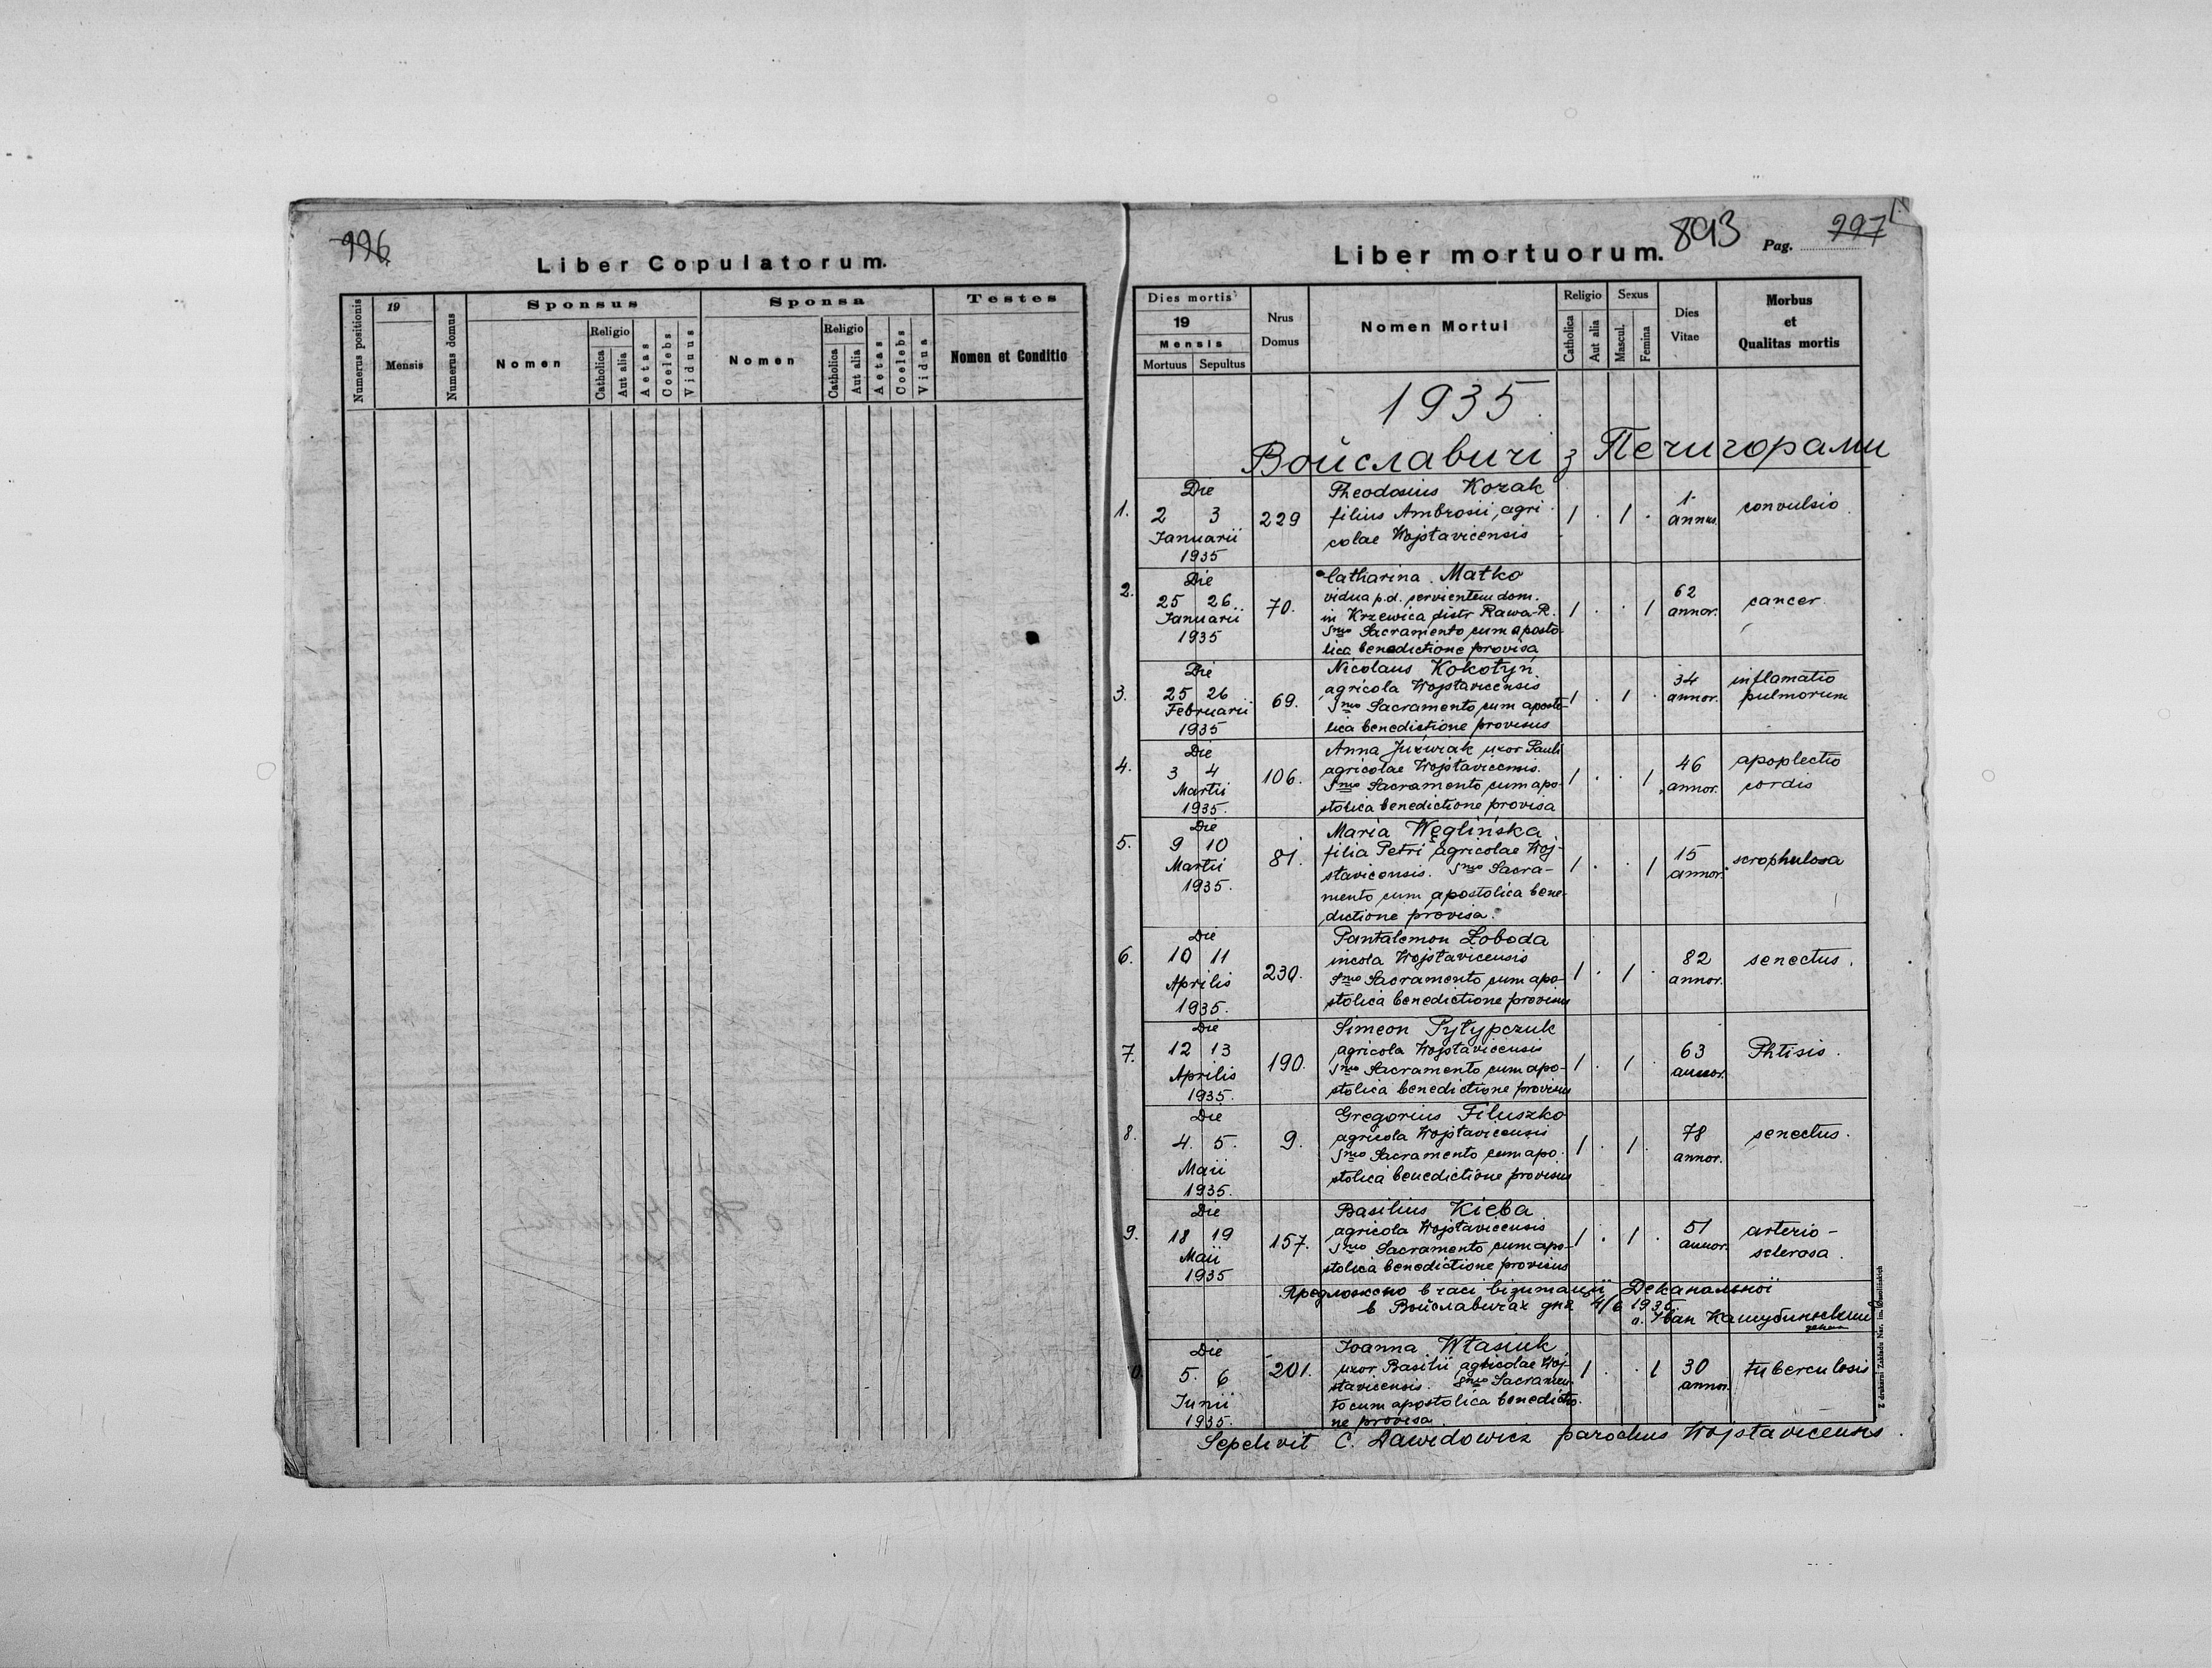 996
Liber Copulatorum.
Numerus positionis
19
Mensis
Numerus domus
Sponsus
Nomen
Religio
Catholica
Aut alia
Aetas
Coelebs
Viduus
Sponsa
Nomen
Religio
Catholica
Aut alia
Aetas
Coelebs
Vidua
Testes
Nomen et Conditio
Liber mortuorum.
893
Pag. 997
Dies mortis
19
Mensis
Mortuus Sepultus
Nrus
Domus
Nomen Mortui
Religio
Catholica
Aut alia
Sexus
Mascul.
Femina
Dies
Vitae
Morbus
et
Qualitas mortis
1935.
Войславичі з Печигорами
1.
Die
2 3
Januarii
1935
229
Theodosius Kozak
filius Ambrosii, agri
colae Wojsławicensis
1 . 1 .
1
annus.
convulsio.
2.
Die
25 26.
Januarii
1935
70.
Catharina Matko
vidua p.d. servientem dom.
in Krzewica distr Rawa-R.
Smo Sacramento cum aposto-
lica benedictione provisa
1 . . 1
62
annor.
cancer.
3.
Die
25 26
Februarii
1935
69.
Nicolaus Kokotyń
agricola Wojsławicensis
Smo Sacramento cum aposto-
lica benedictione provisus
1 . 1 .
34
annor.
inflamatio
pulmorum
4.
Die
3 4
Martii
1935.
106.
Anna Juźwiak uxor Pauli
agricolae Wojsławicensis.
Smo Sacramento cum apo-
stolica benedictione provisa
1 . . 1
46
annor.
apoplectio
cordis
5.
Die
9 10
Martii
1935.
81.
Maria Węglińska
filia Petri agricolae Woj-
sławicensis. Smo Sacra-
mento cum apostolica bene-
dictione provisa.
1 . . 1
15
annor.
scrophulosa
6.
Die
10 11
Aprilis
1935.
230.
Pantalemon Łoboda
incola Wojsławicensis
Smo Sacramento cum apo-
stolica benedictione provisus
1 . 1 .
82
annor.
senectus.
7.
Die
12 13
Aprilis
1935.
190.
Simeon Pyłypczuk
agricola Wojsławicensis
Smo Sacramento cum apo-
stolica benedictione provisus
1 . 1 .
63
annor.
Phtisis.
8.
Die
4 5.
Maii
1935.
9.
Gregorius Filuszko
agricola Wojsławicensis
Smo Sacramento cum apo-
stolica benedictione provisus
1 . 1 .
78
annor.
senectus.
9.
Die
18 19
Maii
1935
157.
Basilius Kieba
agricola Wojsławicensis
Smo Sacramento cum apo-
stolica benedictione provisus
1 . 1 .
51
annor.
arterio-
sclerosa.
Предложено в часі візитації Деканальної
в Войславичах дня 4/6 1935.
о. Іван
декан
Die
5. 6
Junii
1935.
201.
Joanna Własiuk
uxor Basilii agricolae Woj-
sławicensis. Smo Sacramen-
to cum apostolica benedictio-
ne provisa.
1 . . 1
30
annor.
tuberculosis
Sepelivit C. Dawidowicz parochus Wojsławicensis.